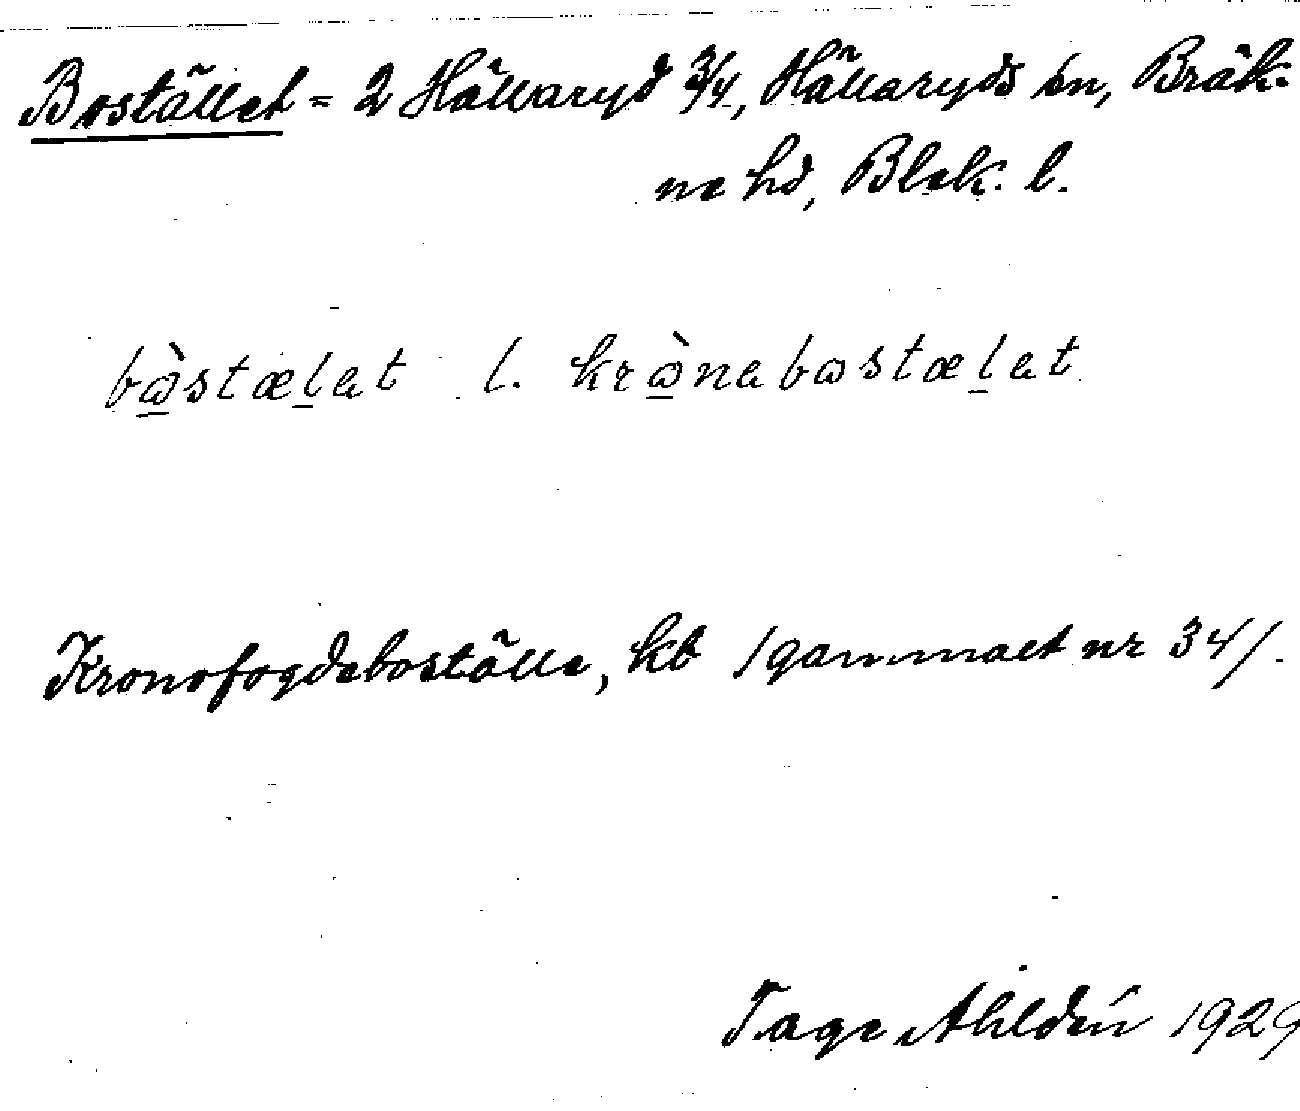 Bostället = 2 Hällaryd 3/4, Hällaryds sn, Bräk-
ne hd, Blek. l.
bòstælet l. krònebostælet
Kronofogdeboställe, kb /gammalt nr 34/.
Tage Ahldén 1929